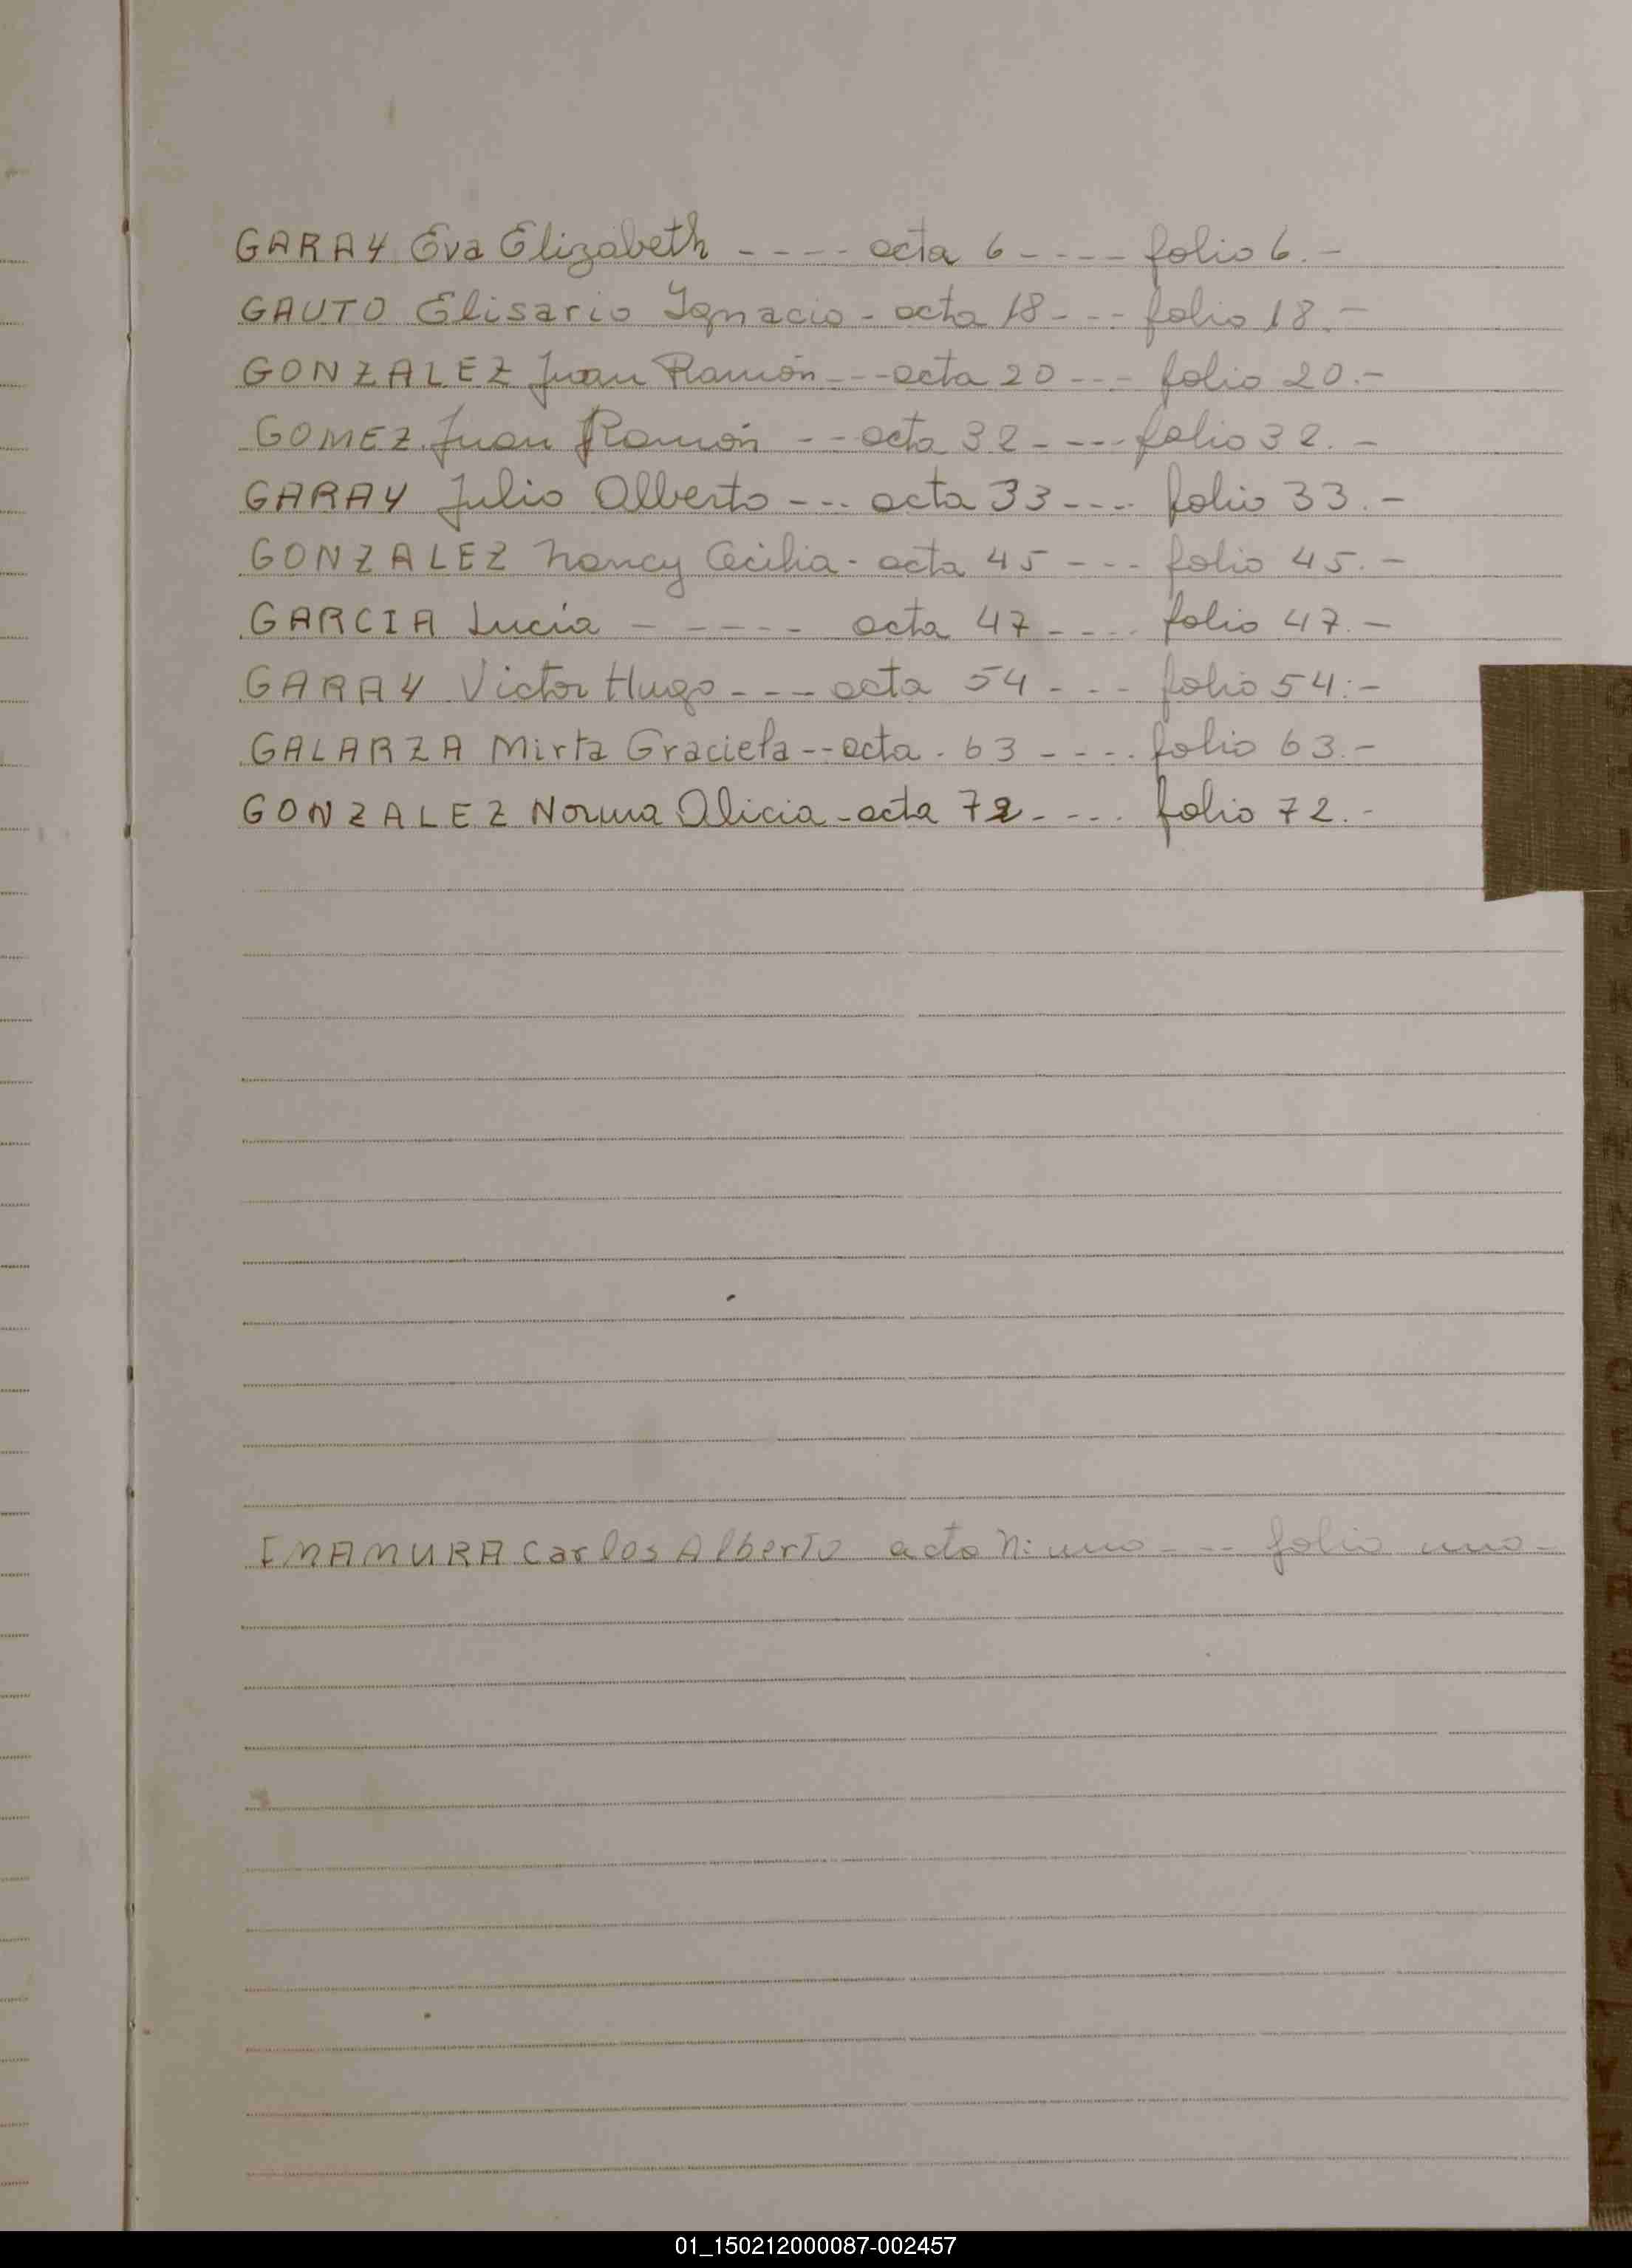 GARAY Eva Elizabeth - - - - acta 6 - - - - folio 6.-
GAUTO Elisario Ignacio - acta 18 - - - folio 18.-
GONZALEZ Juan Ramón - - - acta 20 - - - folio 20.-
GOMEZ Juan Ramón - - acta 32 - - - - folio 32.-
GARAY Julio Alberto - - - acta 33 - - - - folio 33.-
GONZALEZ Nancy Cecilia - acta 45 - - - folio 45.-
GARCIA Lucía - - - - - - acta 47 - - - - folio 47.-
GARAY Victor Hugo - - - - acta 54 - - - folio 54.-
GALARZA Mirta Graciela - - acta 63 - - - - folio 63.-
GONZALEZ Norma Alicia - acta 72 - - - - folio 72.-
IMAMURA Carlos Alberto acta N: uno - - - folio uno -
01_150212000087-002457